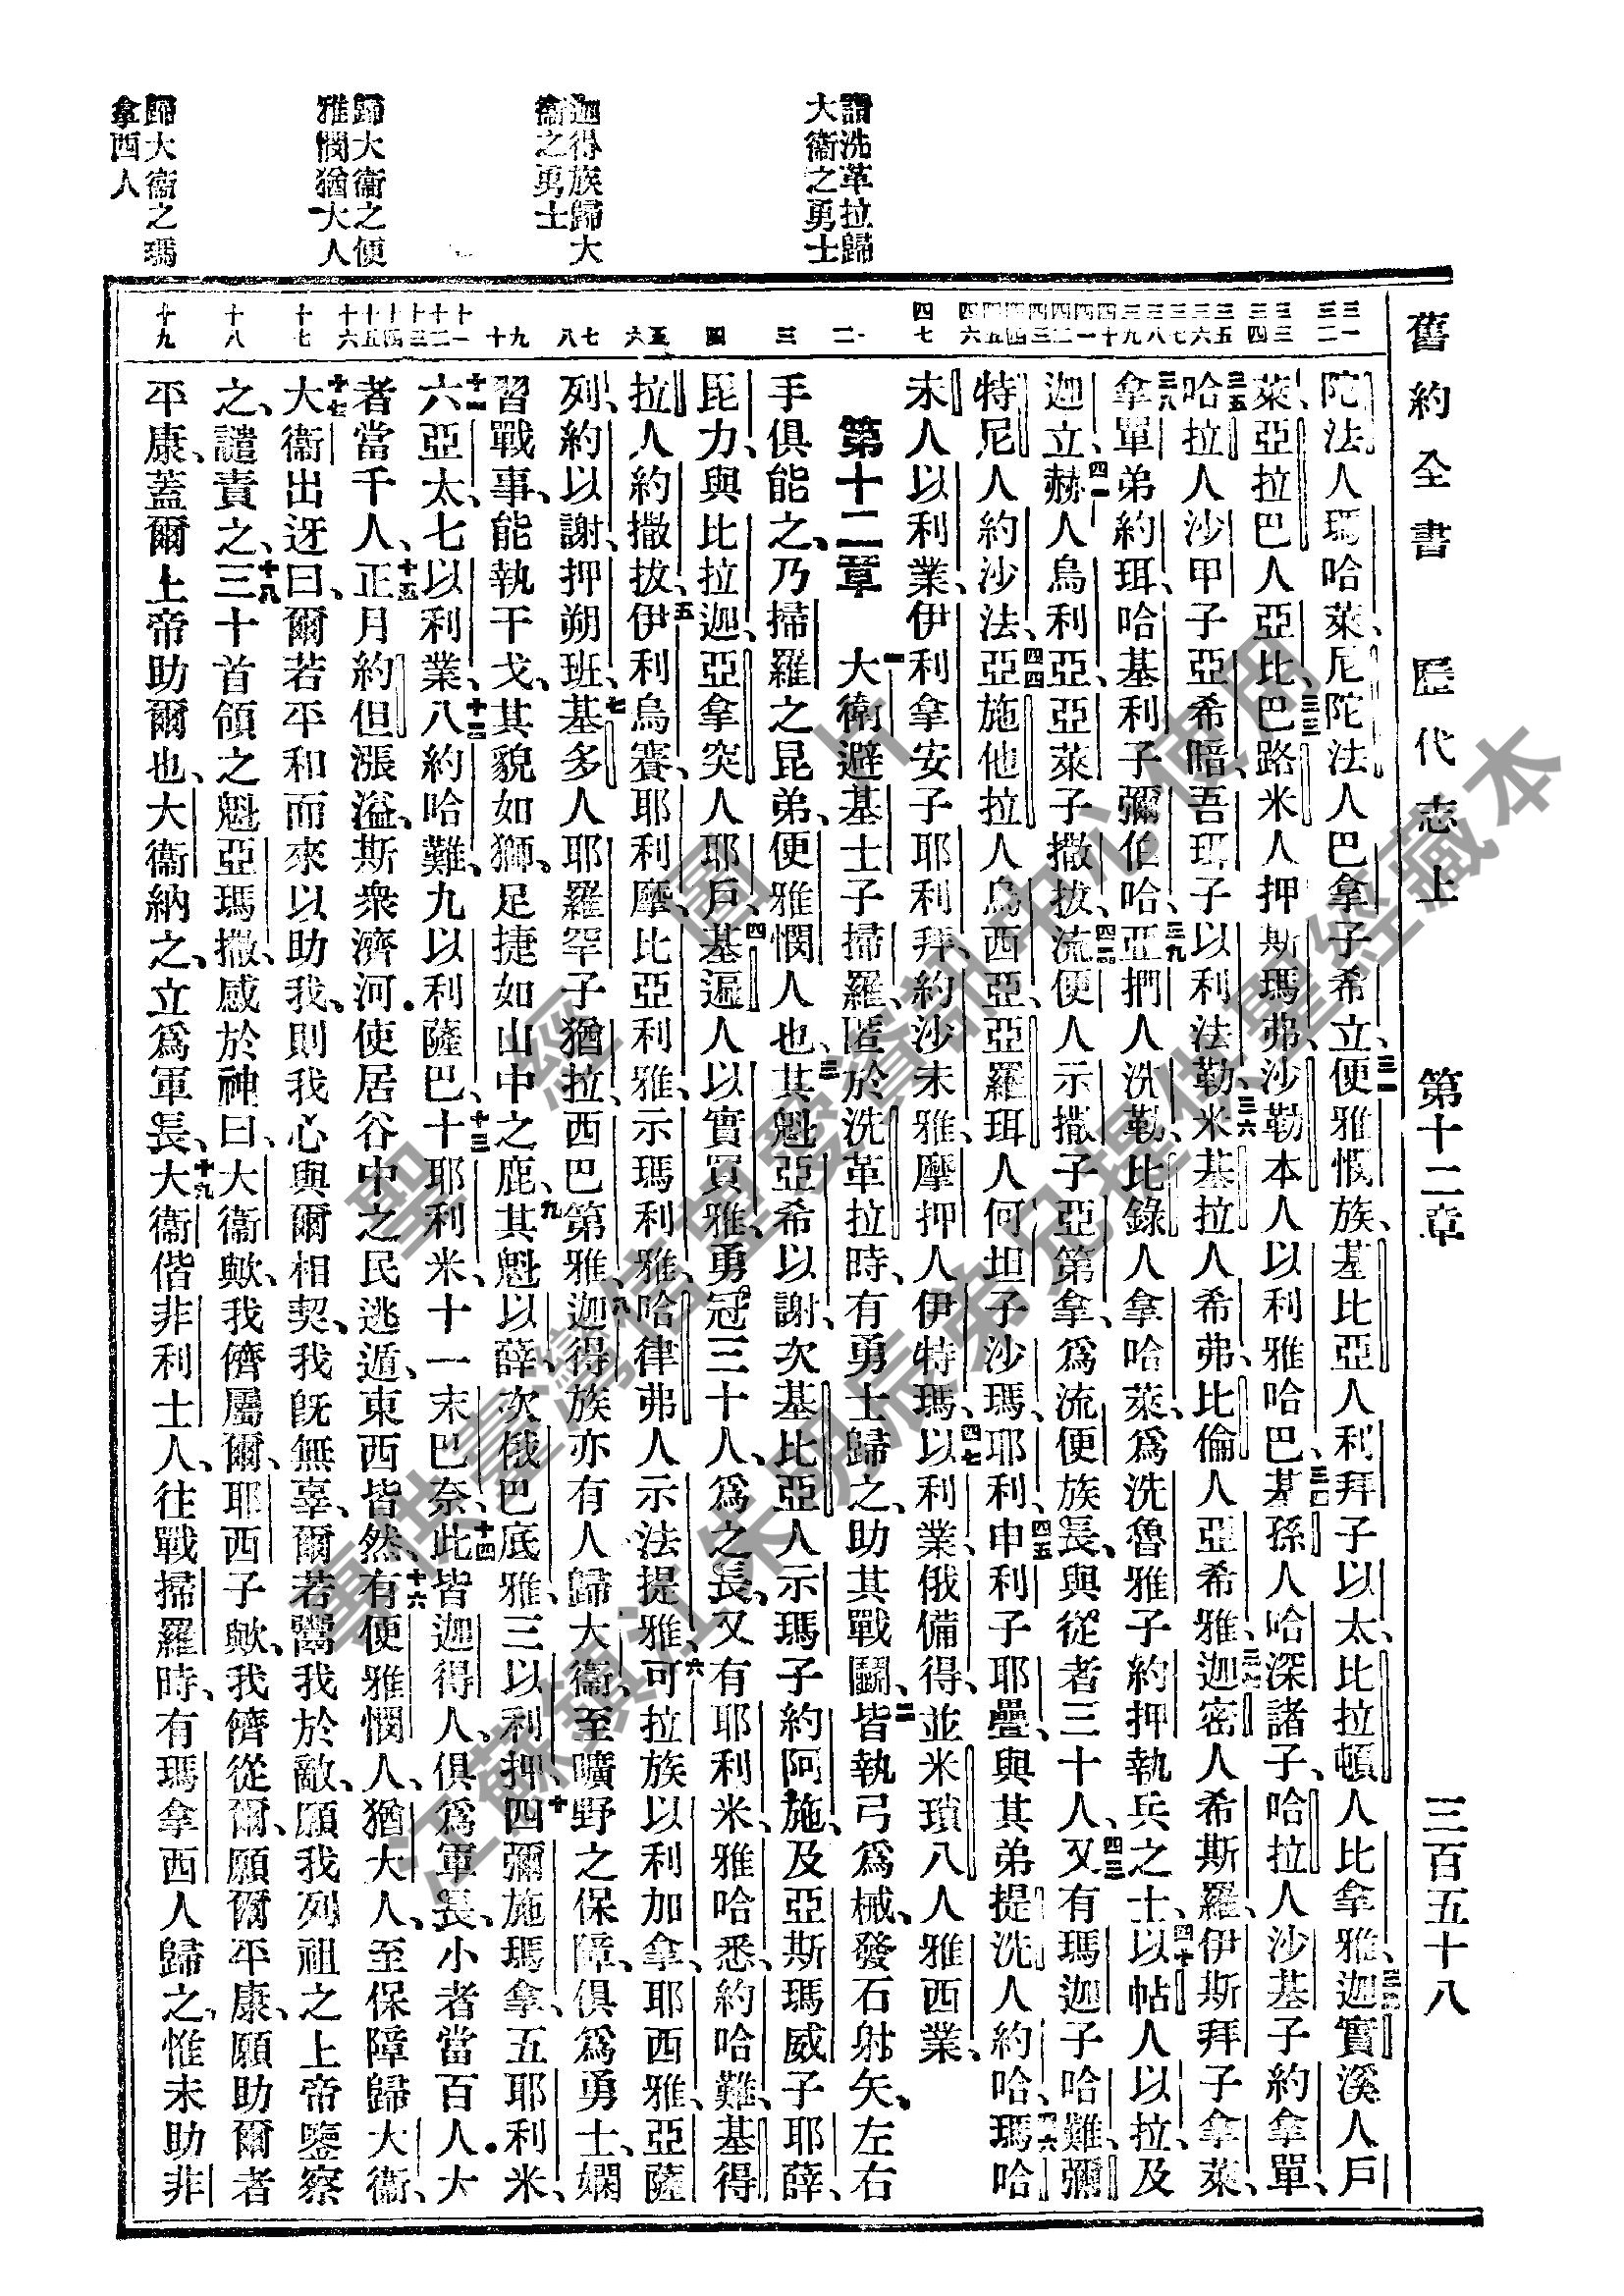 舊約全書 歷代志上 第十二章 三百五十八
詣洗革拉歸
大衞之勇士
迦得族歸大
衞之勇士
歸大衞之便
雅憫猶大人
歸大衞之瑪
拿西人
陀法人瑪哈萊、尼陀法人巴拿子希立、三一便雅憫族、基比亞人利拜子以太、比拉頓人比拿雅、三二迦實溪人戶
萊、亞拉巴人亞比、三三巴路米人押斯瑪弗、沙勒本人以利雅哈巴、三四基孫人哈深諸子、哈拉人沙基子約拿單、
三五哈拉人沙甲子亞希暗、吾珥子以利法勒、三六米基拉人希弗、比倫人亞希雅、三七迦密人希斯羅、伊斯拜子拿萊、
三八拿單弟約珥、哈基利子彌伯哈、三九亞捫人洗勒、比錄人拿哈萊、爲洗魯雅子約押執兵之士、四十以帖人以拉、及
迦立、四一赫人烏利亞、亞萊子撒拔、四二流便人示撒子亞第拿、爲流便族長、與從者三十人、四三又有瑪迦子哈難、彌
特尼人約沙法、四四亞施他拉人烏西亞、亞羅珥人何坦子沙瑪、耶利、四五申利子耶疊、與其弟提洗人約哈、四六瑪哈
未人以利業、伊利拿安子耶利拜、約沙未雅、摩押人伊特瑪、四七以利業、俄備得、並米瑣八人雅西業、
第十二章 一大衞避基士子掃羅、匿於洗革拉時、有勇士歸之、助其戰鬬、二皆執弓爲械、發石射矢、左右
手俱能之、乃掃羅之昆弟、便雅憫人也、三其魁亞希以謝、次基比亞人示瑪子約阿施、及亞斯瑪威子耶薛、
毘力、與比拉迦、亞拿突人耶戶、四基遍人以實買雅、勇冠三十人、爲之長、又有耶利米、雅哈悉、約哈難、基得
拉人約撒拔、五伊利烏賽、耶利摩、比亞利雅、示瑪利雅、哈律弗人示法提雅、六可拉族以利加拿、耶西雅、亞薩
列、約以謝、押朔班、七基多人耶羅罕子猶拉、西巴第雅、八迦得族亦有人歸大衞、至曠野之保障、俱爲勇士、嫻
習戰事、能執干戈、其貌如獅、足捷如山中之鹿、九其魁以薛、次俄巴底雅、三以利押、十四彌施瑪拿、五耶利米、
十一六亞太、七以利業、十二八約哈難、九以利薩巴、十三十耶利米、十一末巴奈、十四此皆迦得人、俱爲軍長、小者當百人、大
者當千人、十五正月約但漲溢、斯衆濟河、使居谷中之民逃遁、東西皆然、十六有便雅憫人、猶大人、至保障歸大衞、
十七大衞出迓曰、爾若平和而來以助我、則我心與爾相契、我旣無辜、爾若鬻我於敵、願我列祖之上帝鑒察
之、譴責之、十八三十首領之魁亞瑪撒、感於神曰、大衞歟、我儕屬爾、耶西子歟、我儕從爾、願爾平康、願助爾者
平康、蓋爾上帝助爾也、大衞納之、立爲軍長、十九大衞偕非利士人、往戰掃羅時、有瑪拿西人歸之、惟未助非
三一
三二
三三
三四
三五
三六
三七
三八
三九
四十
四一
四二
四三
四四
四五
四六
四七
一
二
三
四
五
六
七
八
九
十
十一
十二
十三
十四
十五
十六
十七
十八
十九
聖經圖片
專供臺灣信望愛資訊中心使用
江蘇鎮江朱明辰弟兄提供聖經藏本